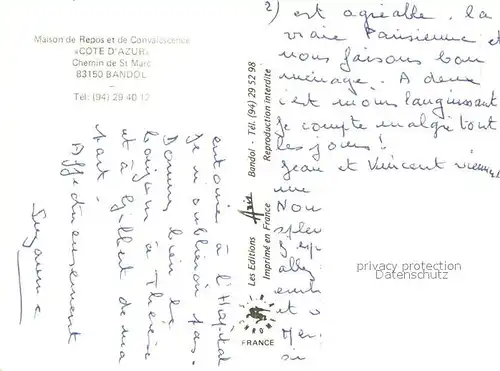 Maison de Repos et de Convalescence
«COTE D'AZUR»
Chemin de St Marc
83150 BANDOL
Tél: (94) 29 40 12
2) est agréable. la
vraie Parisienne et
nous faisons bon
ménage. A deux
c'est moins languissant
Je compte malgré tout
les jours!
Jean et Vincent
Nou
et
Mer
antoine à l'Hôpital
Je n'oublierai pas.
Donnez bien le
bonjour à Thérèse
et à Gilbert de ma
part.
Affectueusement
Suzanne
Les Editions Aris Bandol - Tél. (94) 29 52 98
Imprimé en France Reproduction interdite
FRANCE
privacy protection
Datenschutz